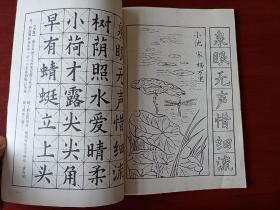 泉眼无声惜细流
小池 宋 杨万里
泉眼无声惜细流
树荫照水爱晴柔
小荷才露尖尖角
早有蜻蜓立上头